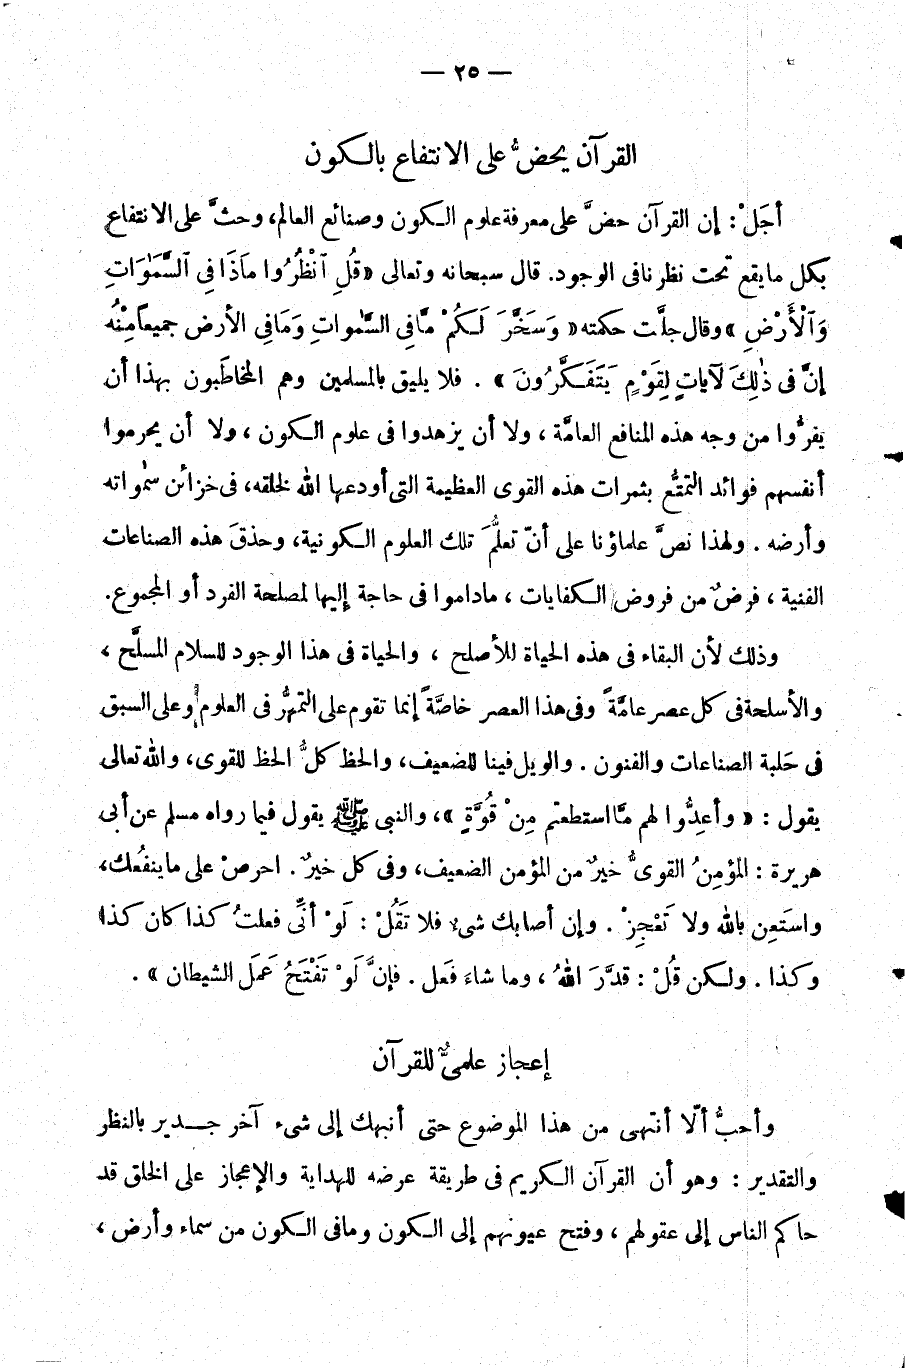 — ٢٥ —
القرآن يحضُّ على الانتفاع بالكون
أجَلْ: إن القرآن حضَّ على معرفة علوم الكون وصنائع العالم، وحثَّ على الانتفاع
بكل ما يقع تحت نظرنا فى الوجود. قال سبحانه وتعالى «قُلِ ٱنْظُرُوا مَاذَا فِى ٱلسَّمٰوَاتِ
وَٱلْأَرْضِ» وقال جلَّت حكمته «وَسَخَّرَ لَكُمْ مَّا فِى السَّمٰواتِ وَمَا فِى الأرض جميعًا مِنْهُ
إنَّ فى ذٰلِكَ لَآياتٍ لِقَوْمٍ يَتَفَكَّرُونَ» . فلا يليق بالمسلمين وهم المخاطَبون بهذا أن
يفرُّوا من وجه هذه المنافع العامَّة ، ولا أن يزهدوا فى علوم الكون ، ولا أن يحرموا
أنفسهم فوائد التمتُّع بثمرات هذه القوى العظيمة التى أودعها الله لخلقه، فى خزائن سمٰواته
وأرضه . ولهذا نصَّ علماؤنا على أنّ تعلُّمَ تلك العلوم الكونية، وحذقَ هذه الصناعات
الفنية ، فرضٌ من فروض الكفايات ، ماداموا فى حاجة إليها لمصلحة الفرد أو المجموع.
وذلك لأن البقاء فى هذه الحياة للأصلح ، والحياة فى هذا الوجود للسلام المسلَّح ،
والأسلحة فى كل عصر عامَّةً وفى هذا العصر خاصَّةً إنما تقوم على التمهُّر فى العلوم وعلى السبق
فى حَلبة الصناعات والفنون . والويل فينا للضعيف، والحظ كلُّ الحظ للقوى، والله تعالى
يقول : « وأعِدُّوا لهم مَّا استطعتم مِنْ قُوَّةٍ »، والنبى ﷺ يقول فيما رواه مسلم عن أبى
هريرة : المؤمِنُ القوىُّ خيرٌ من المؤمن الضعيف، وفى كل خيرٌ . احرصْ على ما ينفُعك،
واستَعِن بالله ولا تَعْجِزْ . وإن أصابك شىء فلا تَقُلْ : لَوْ أنِّى فعلتُ كذا كان كذا
وكذا . ولكن قُلْ : قدَّرَ اللهُ ، وما شاءَ فَعل . فإنَّ لَوْ تَفْتَحُ عَمَلَ الشيطان » .
إعجاز علمىٌّ للقرآن
وأحبُّ ألّا أنتهى من هذا الموضوع حتى أنبهك إلى شىء آخر جدير بالنظر
والتقدير : وهو أن القرآن الكريم فى طريقة عرضه للهداية والإعجاز على الخلق قد
حاكم الناس إلى عقولهم ، وفتح عيونهم إلى الكون وما فى الكون من سماء وأرض ،